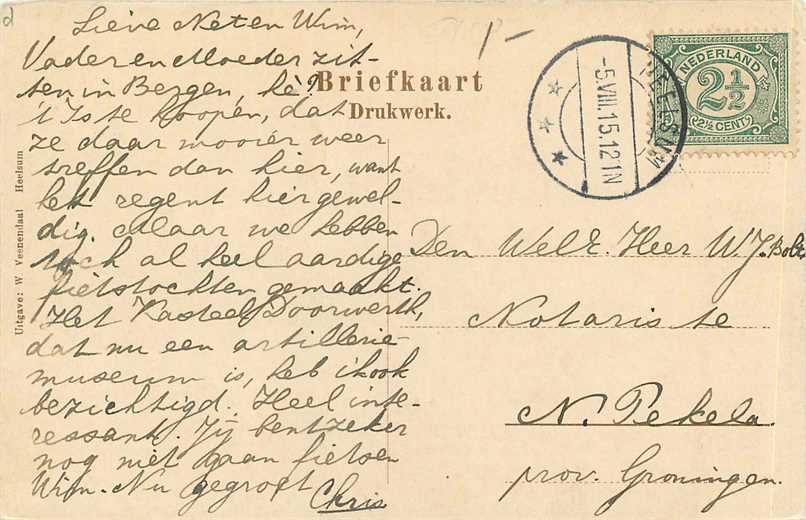 Lieve Net en Wim,
Vader en Moeder zit-
ten in Bergen, hè?
't Is te hoopen, dat
ze daar mooier weer
treffen dan hier, want
het regent hier gewel-
dig. Maar we hebben
toch al heel aardige
fietstochten gemaakt.
Het Kasteel Doorwerth,
dat nu een artillerie-
museum is, heb ik ook
bezichtigd. Heel inte-
ressant. Jij bent zeker
nog niet gaan fietsen
Wim. Nu gegroet
Chris
Briefkaart
Drukwerk.
Uitgave: W Veenendaal Heelsum
HEELSUM
-5.VIII.15.12 1N
NEDERLAND
2½
2½ CENT
Den WelE. Heer W.J. Bolt
Notaris te
N. Pekela.
prov. Groningen.